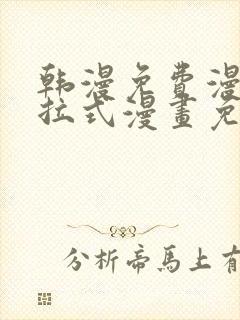 韩漫免費漫
拉式漫畫免
分析帝馬上有